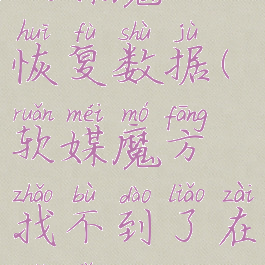 huī fù shù jù
恢复数据(
ruǎn méi mó fāng
软媒魔方
zhǎo bù dào liǎo zài
找不到了在